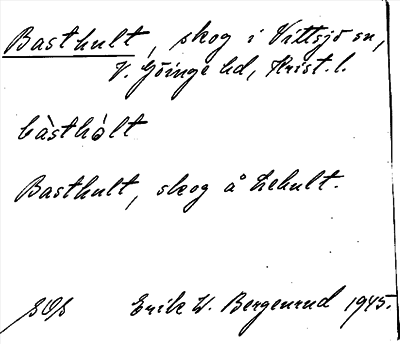 Basthult, skog i Vittsjö sn,
V. Göinge hd, Krist. l.
bàsthòlt
Basthult, skog å Lehult.
SOS Erik W. Bergenrud 1945.